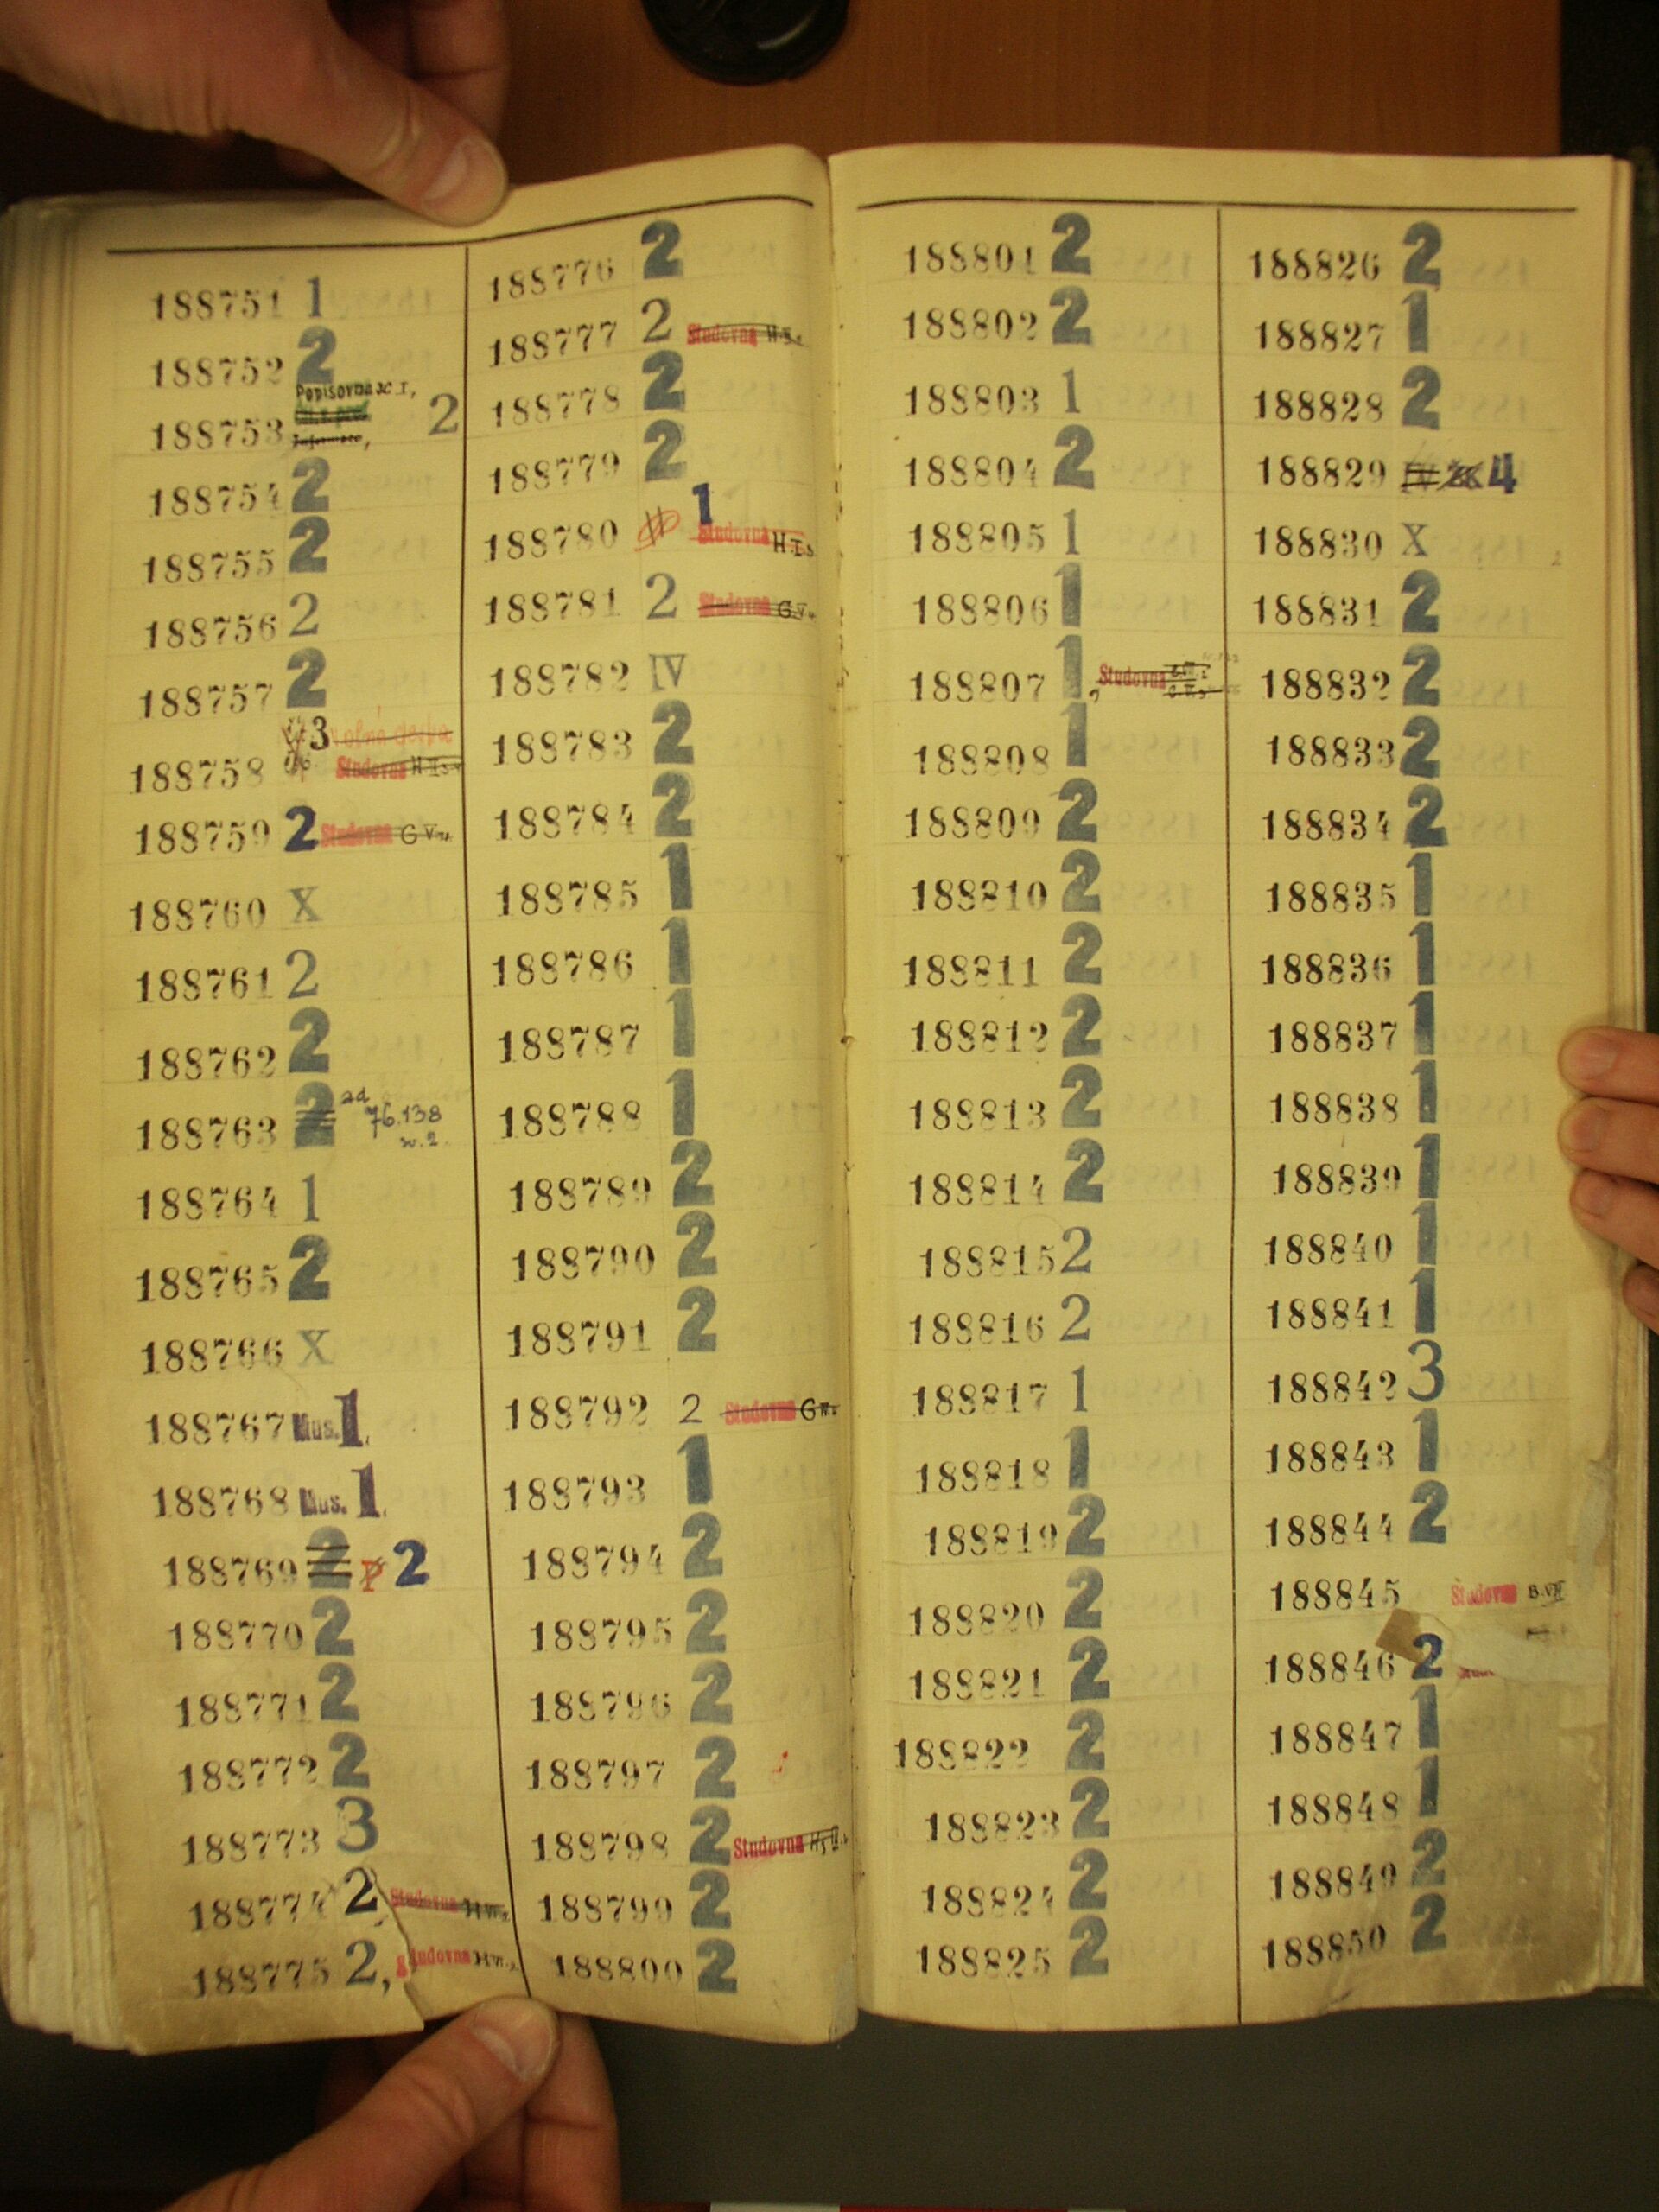 188751 1
188752 2
188753 Popisovna 2
188754 2
188755 2
188756 2
188757 2
188758 3 Studovna
188759 2 Studovna G V
188760 X
188761 2
188762 2
188763 2 ad 76.138
188764 1
188765 2
188766 X
188767 Mus. 1
188768 Mus. 1
188769 2 P 2
188770 2
188771 2
188772 2
188773 3
188774 2 Studovna
188775 2, Studovna
188776 2
188777 2 Studovna
188778 2
188779 2
188780 1 Studovna
188781 2 Studovna
188782 IV
188783 2
188784 2
188785 1
188786 1
188787 1
188788 1
188789 2
188790 2
188791 2
188792 2 Studovna
188793 1
188794 2
188795 2
188796 2
188797 2
188798 2 Studovna
188799 2
188800 2
188801 2
188802 2
188803 1
188804 2
188805 1
188806 1
188807 1, Studovna
188808 1
188809 2
188810 2
188811 2
188812 2
188813 2
188814 2
188815 2
188816 2
188817 1
188818 1
188819 2
188820 2
188821 2
188822 2
188823 2
188824 2
188825 2
188826 2
188827 1
188828 2
188829 4
188830 X
188831 2
188832 2
188833 2
188834 2
188835 1
188836 1
188837 1
188838 1
188839 1
188840 1
188841 1
188842 3
188843 1
188844 2
188845 Studovna B.VII
188846 2
188847 1
188848 1
188849 2
188850 2